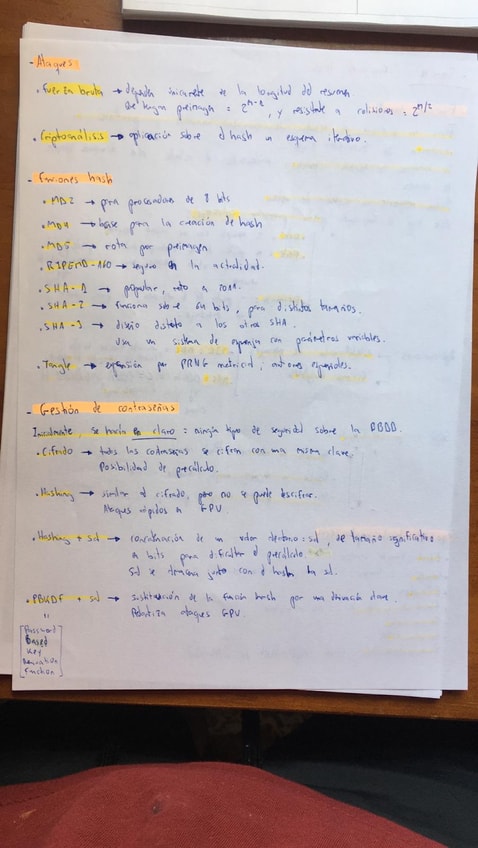 - Ataques
• Fuerza bruta → depende únicamente de la longitud del resumen
de hagan preimagen = 2^n-1, y resistente a colisiones = 2^n/2
• Criptoanálisis → aplicación sobre el hash un esquema iterativo.
- Funciones hash
• MD2 → para procesadores de 8 bits
• MD4 → base para la creación de hash
• MD5 → rota por preimagen
• RIPEMD-160 → seguro en la actualidad.
• SHA-1 → popular, roto a
• SHA-2 → funciona sobre 64 bits, para distintos tamaños.
• SHA-3 → diseño distinto a los otros SHA.
Usa un sistema de esponja con parámetros variables.
• Tangle → expansión por PRNG matricial,
- Gestión de contraseñas
Inicialmente, se hacía en claro = ningún tipo de seguridad sobre la BBDD.
• Cifrado → todas las contraseñas se cifran con una misma clave.
Posibilidad de precálculo.
• Hashing → similar al cifrado, pero no se puede descifrar.
Ataques rápidos a GPU.
• Hashing + sal → concatenación de un valor aleatorio = sal, de tamaño significativo
n bits para dificultar el precálculo.
Sal se almacena junto con el hash la sal.
• PBKDF + sal → sustitución de la función hash por una derivación clave.
ataques GPU.
"
[Password
Based
Key
Derivation
Function]